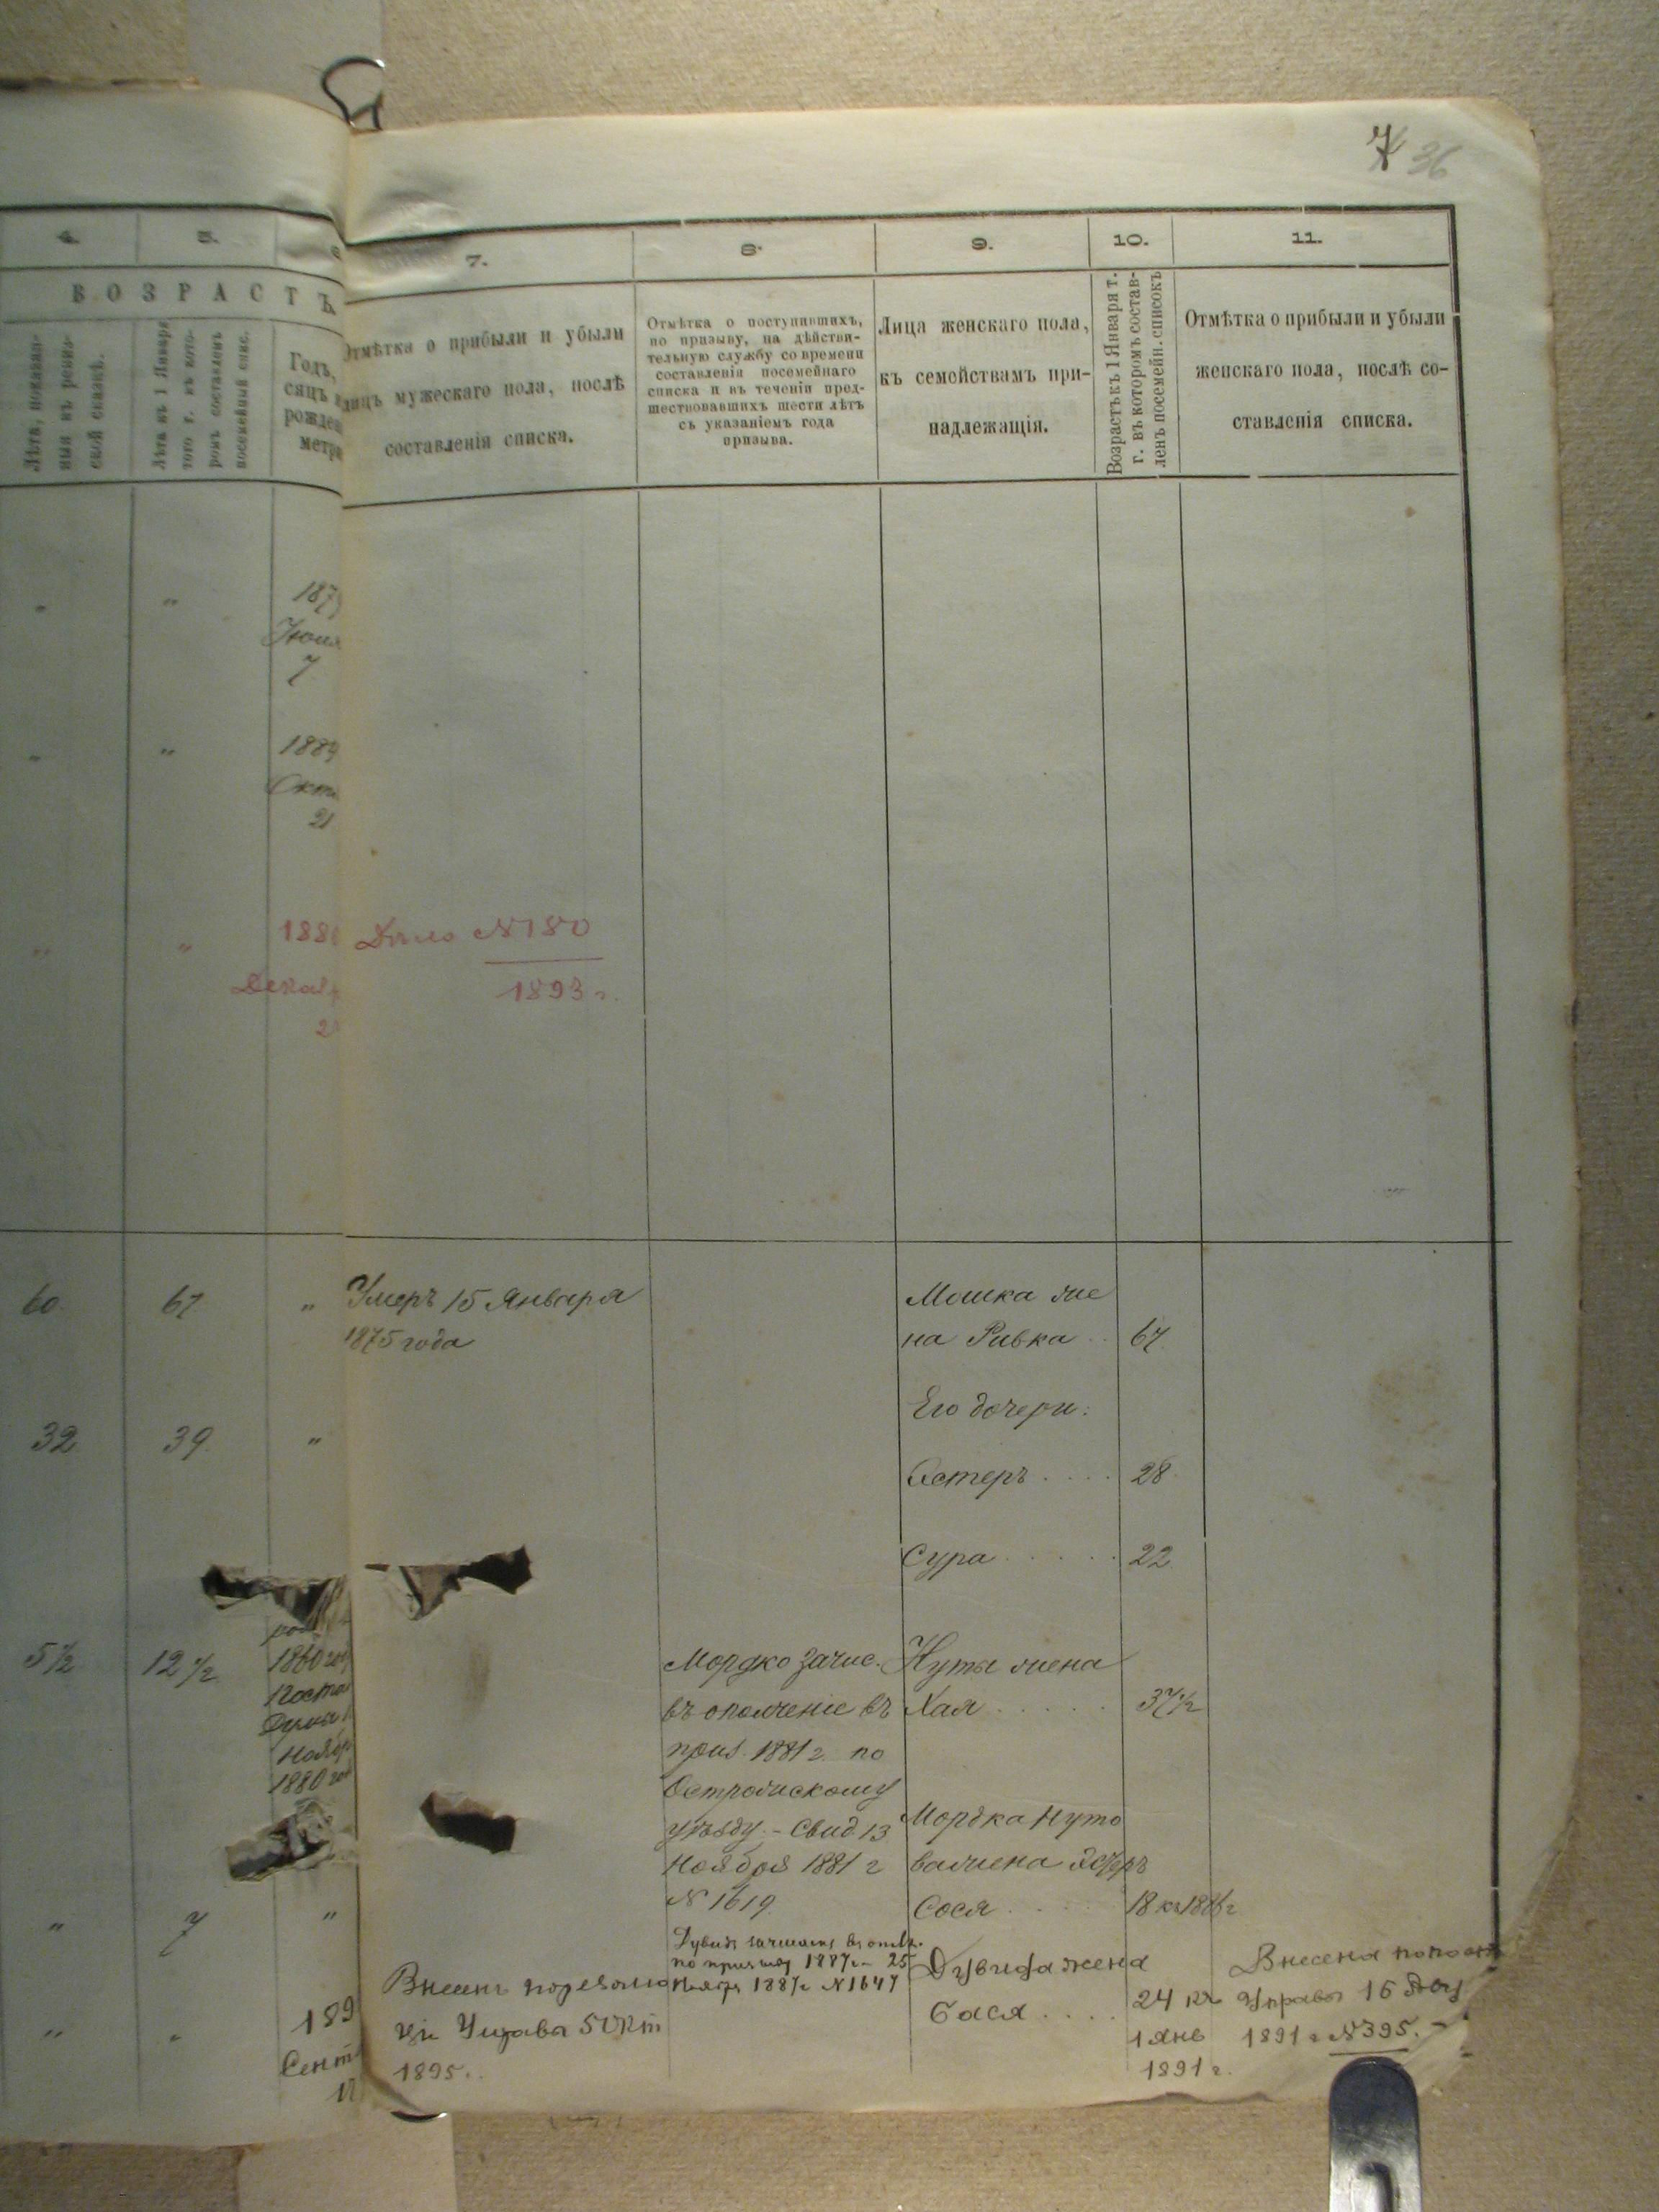 7 36
4. 5. 7. 8. 9. 10. 11.
ВОЗРАСТЪ
Лѣта къ 1 Января
того г. въ кото-
ромъ составленъ
посемейный спис.
ской сказкѣ.
Годъ,
Отмѣтка о прибыли и убыли
лицъ мужескаго пола, послѣ
составленія списка.
Отмѣтка о поступившихъ,
по призыву, на дѣйстви-
тельную службу со времени
составленія посемейнаго
списка и въ теченіи пред-
шествовавшихъ шести лѣтъ
съ указаніемъ года
призыва.
Лица женскаго пола,
къ семействамъ при-
надлежащія.
Возрастъ къ 1 Января т.
г. въ которомъ состав-
ленъ посемейн. списокъ
Отмѣтка о прибыли и убыли
женскаго пола, послѣ со-
ставленія списка.
" " 187
Июня
7
" " 1889
Окт
21
" " 188
Дѣло №180
1893 г.
Декаб
2
60 67 " Умеръ 15 Января
1875 года
Мошка же
на Ривка .. 67
Его дочери:
32 39 "
Естеръ .... 28
Сура ..... 22
5½ 12½ 1860
Ноябр
1880
Мордко зачис.
въ ополченіе въ
приз. 1881 г. по
Острожскому
уѣзду. – Свид 13
Ноября 1881 г
№ 1619.
Нуты жена
Хая ..... 37½
Мордка Нуто
ва жена Эстеръ
Сося .... 18 къ 1886 г
" 7 "
по призыву 1887 г. – 25
Ноября 1887 г №1647
Дувида жена
Бася .... 24 къ
1 янв
1891 г.
Внесена по пост
Управы 16
1891 г №395. –
" " 189
Сент
Внесенъ
Управы
1895..